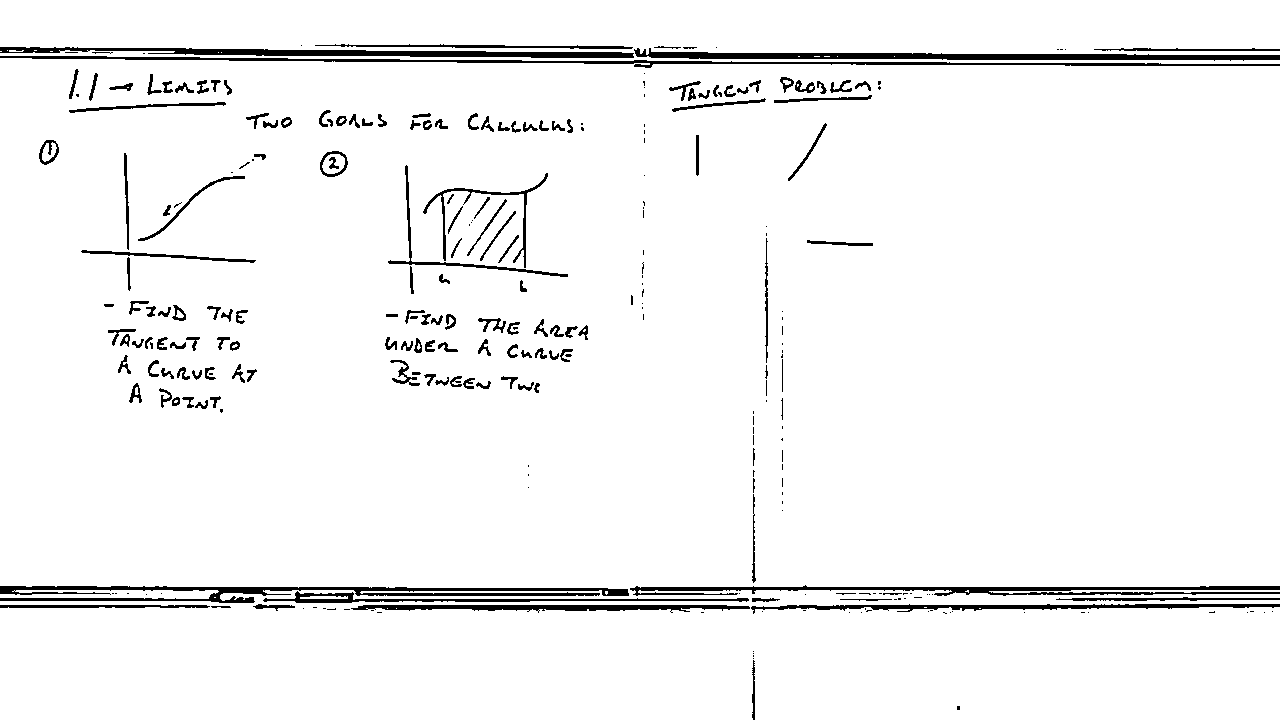 1.1 → LIMITS
TWO GOALS FOR CALCULUS:
①
②
a
b
- FIND THE
TANGENT TO
A CURVE AT
A POINT.
- FIND THE AREA
UNDER A CURVE
BETWEEN
TANGENT PROBLEM: